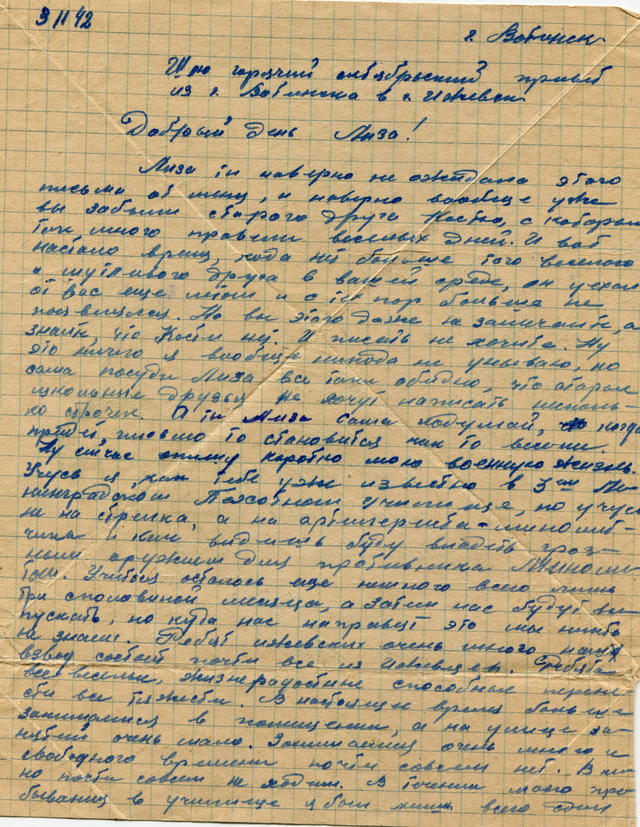 3 II 42
г. Воткинск
Шлю горячий октябрьский привет
из г. Воткинска в г. Ижевск
Добрый день Лиза!
Лиза ты наверно не ожидала этого
письма от меня, и наверно вообще уже
вы забыли старого друга Костю, с которым
так много провели веселых дней. И вот
настало время, когда нет больше того веселого
и шутливого друга в вашей среде, он уехал
от Вас еще летом и с тех пор больше не
появлялся. Но вы этого даже не замечаете, а
знаете, что Кости нет. И писать не хотите. Ну
это ничего я вообще никогда не унываю, но
сама посуди Лиза все таки обидно, что старые
школьные друзья не хочут написать несколь-
ко строчек. А ты Лиза сама подумай, когда
придет письмо то становится как то веселей.
Ну сейчас опишу коротко мою военную жизнь.
Учусь я, как тебе уже известно в 3ем Ле-
нинградском Пехотном училище, но учусь
не на стрелка, а на артиллериста-миномет-
чика и как видишь буду владеть гроз-
ным оружием для противника Миноме-
том. Учиться осталось еще немного всего лишь
три с половиной месяца, а затем нас будут вы-
пускать, но куда нас направят это мы никто
не знаем. Ребят ижевских очень много наш
взвод состоит почти все из Ижевцев. Ребята
все веселые, жизнерадостные способные перене-
сти все тяжести. В настоящее время больше
занимаемся в помещении, а на улице за-
нятий очень мало. Занимаемся очень много и
свободного времени почти совсем нет. В ки-
но почти совсем не ходим. В течении моего пре-
бывания в училище я был лишь всего один